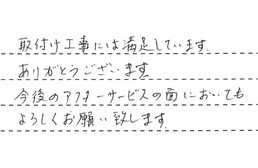 取付け工事には満足しています
ありがとうございます
今後のアフターサービスの面においても
よろしくお願い致します